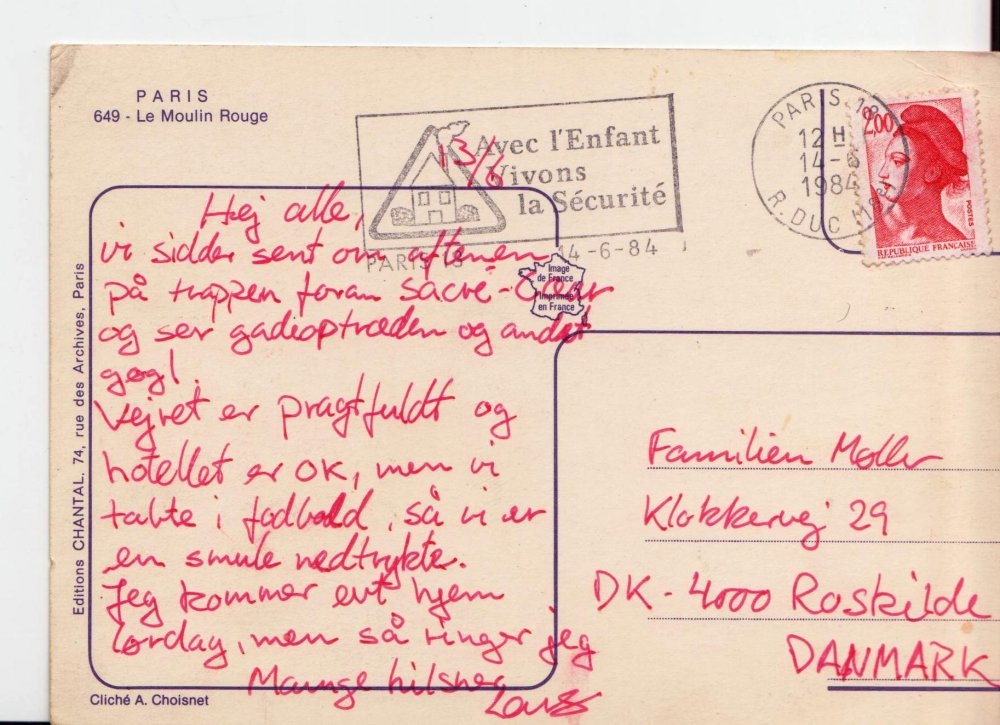 PARIS
649 - Le Moulin Rouge
Avec l'Enfant
Vivons
la Sécurité
PARIS 18
14-6-84
PARIS 18
12 H
14-6
1984
R. DUC
2,00
POSTES
REPUBLIQUE FRANÇAISE
13/6
Hej alle,
vi sidder sent om aftenen
på trappen foran Sacré-Cœur
og ser gadeoptræden og andet
gøgl.
Vejret er pragtfuldt og
hotellet er OK, men vi
tabte i fodbold, så vi er
en smule nedtrykte.
Jeg kommer evt hjem
lørdag, men så ringer jeg
Mange hilsner
Image
de France
Imprimée
en France
Familien Møller
Klokkervej 29
DK - 4000 Roskilde
DANMARK
Editions CHANTAL. 74, rue des Archives, Paris
Cliché A. Choisnet